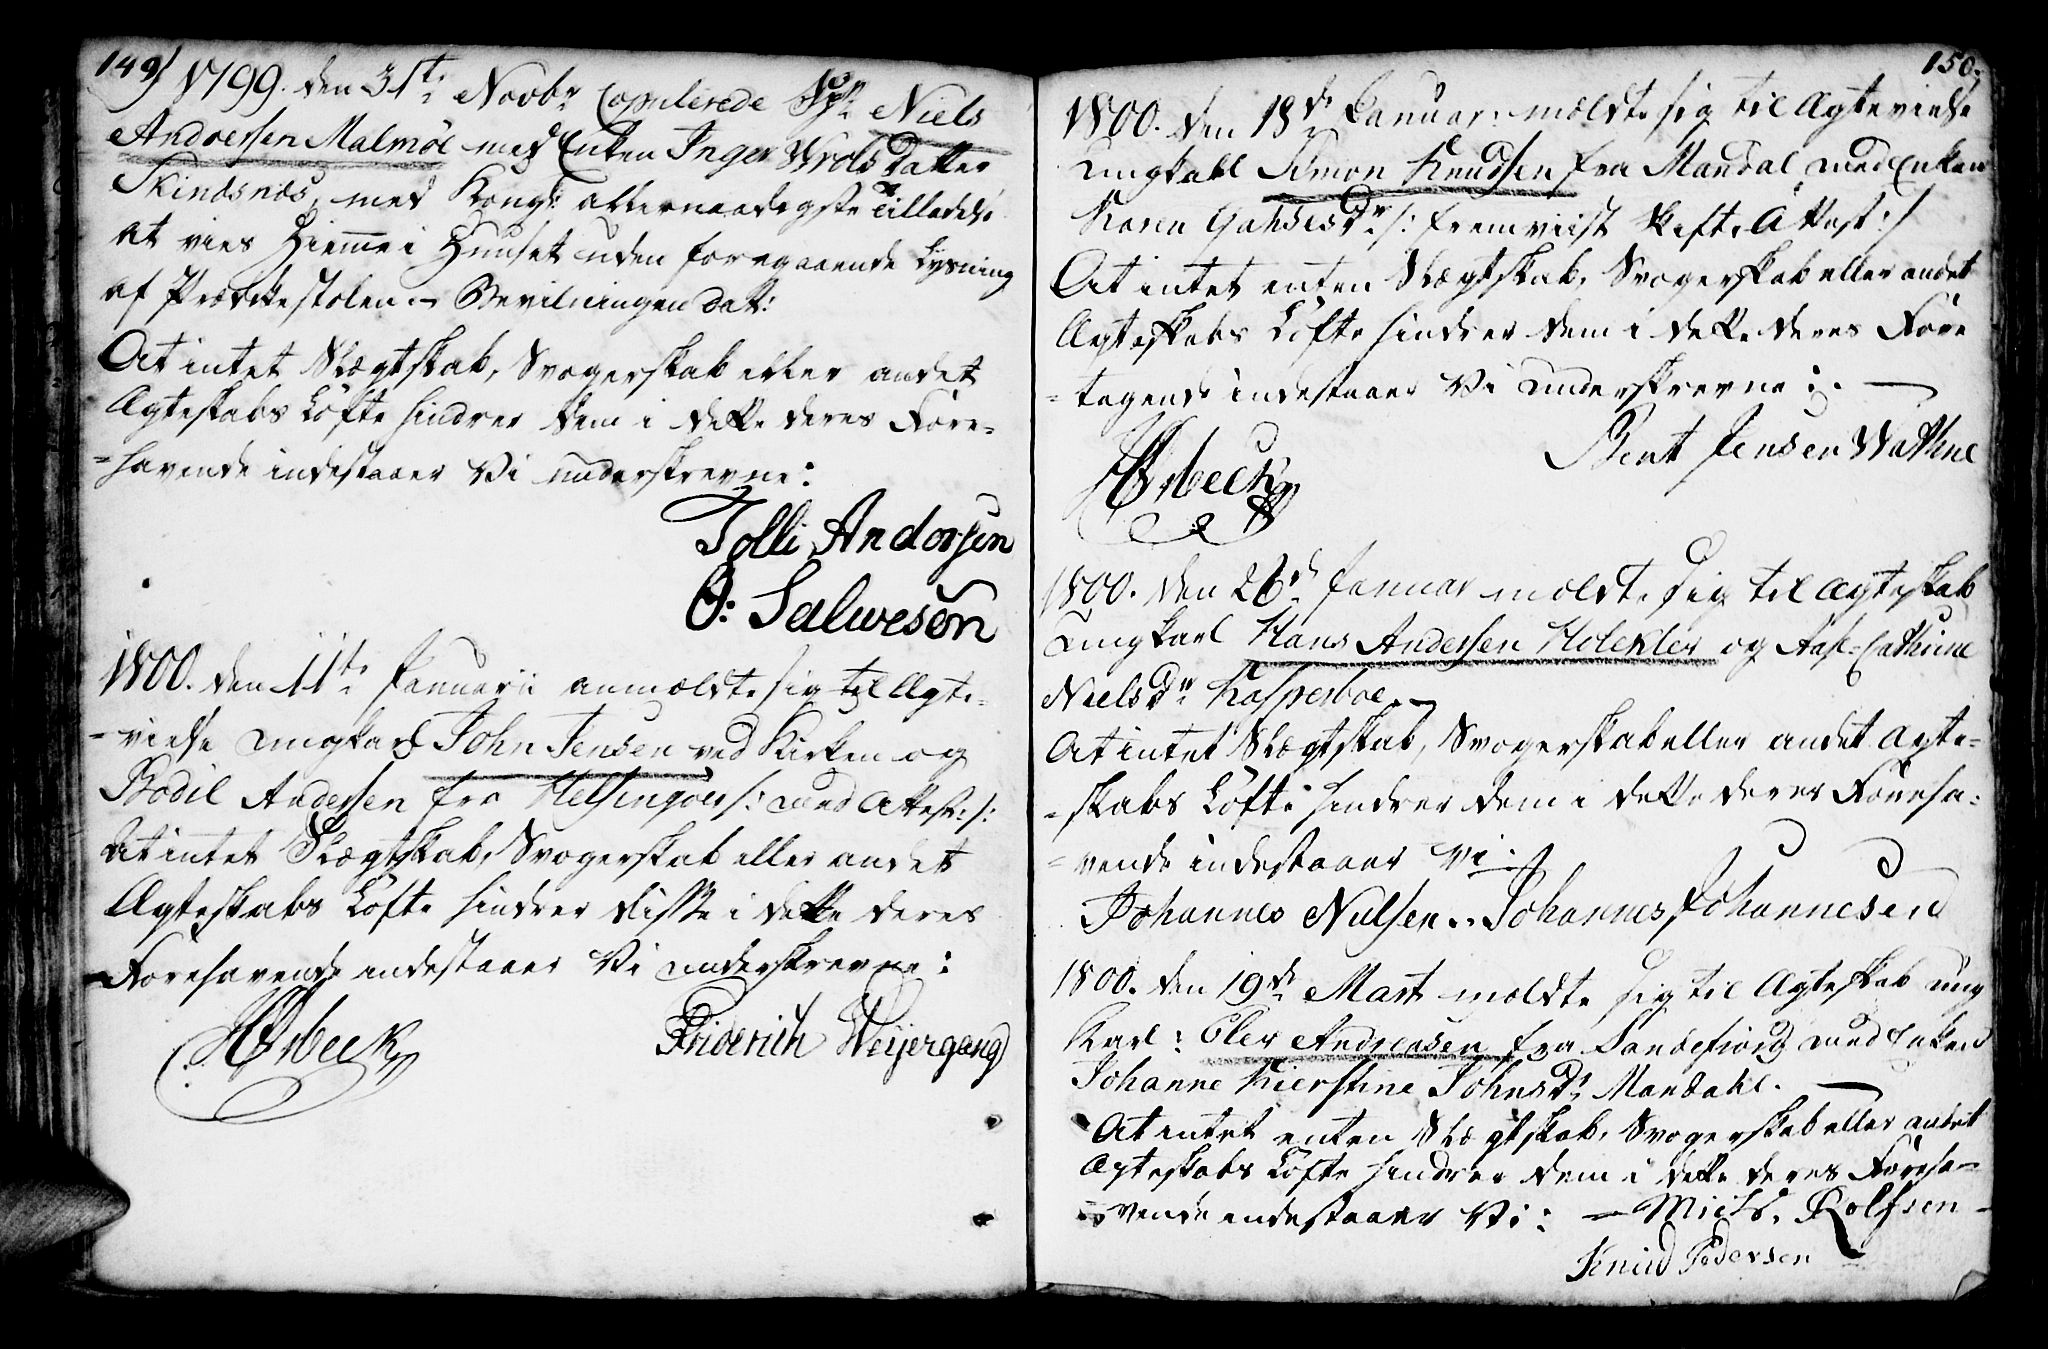 149/
1799. den 31te Novbr Copulerede Niels
Andersen Malmöe med Enken Inger Wrolsdatter
Skindsnæs, med Kongl: allernaadigste Tilladelse
at vies Hiemme i Huuset uden foregaaende Lysning
af Prædikestolen. Bevilningen dat:
At intet Slægtskab, Svogerskab eller andet
Ægteskabs Löfte hindrer dem i dette deres Fore-
=havende indestaaer Vi underskrevne:
Tolli Andorsen
O: Salwesøn
1800. den 11te Januarii anmeldte sig til Ægte-
=vielse Ungkarl John Jensen ved Kirken og
Bodil Andersen fra Helsingöer /: med Attest :/:
At intet Slægtskab, Svogerskab eller andet
Ægteskabs Löfte hindrer disse i dette deres
Forehavende indestaaer Vi underskrevne:
Friderich Weijergang
150.
1800. den 18de Januar: meldte sig til Ægtevielse
Ungkarl Simon Knudsen fra Mandal med Enken
Karen /: fremviist Skifte Attest :/
At intet enten Slægtskab, Svogerskab eller andet
Ægteskabs Löfte hindrer dem i dette deres Fore
=tagende indestaaer Vi underskrevne :
Bent Jensen Wathne
1800. den 26de Januar meldte sig til Ægteskab
Ungkarl Hans Andersen og Aase Cathrine
Nielsdr Kaspersboe.
At intet Slægtskab, Svogerskab eller andet Ægte-
=skabs Löfte hindrer dem i dette deres Foreha-
=vende indestaaer Vi:
Johannes Nielsen.. Johannes Johannesen
1800. den 19de Marts meldte sig til Ægteskab ung
Karl: Oler Andreasen fra Sandefiord med Enken
Johanne Kierstine Johnsdr Mandahl.
At intet enten Slægtskab, Svogerskab eller andet
Ægteskabs Löfte hindrer dem i dette deres Foreha-
=vende indestaaer Vi: Mich. Rolfsen
Knud Pedersen